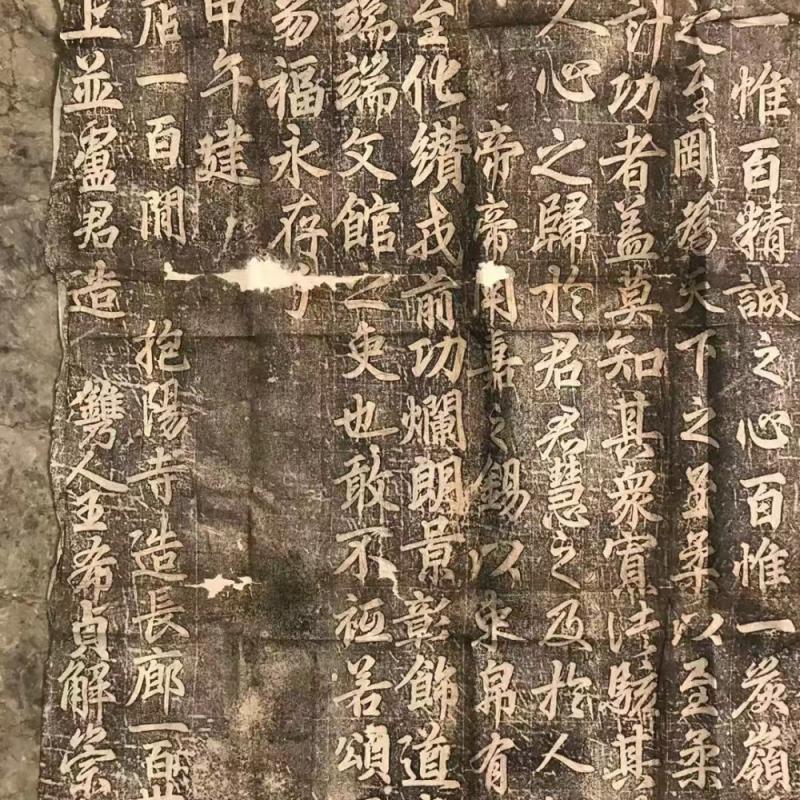 一惟百精誠之心百惟一炭嶺
之至剛為天下之至柔以至柔
計功者蓋莫知其眾實法駭其
人心之歸於君君慧之及於人
帝帝用嘉之錫以束帛有
至化纘戎前功爛朗景彰飾道
端端文館之吏也敢不祗若頌
昜福永存乎
甲午建
店一百間 抱陽寺造長廊一百
上並盧君造 鐫人王希貞解崇